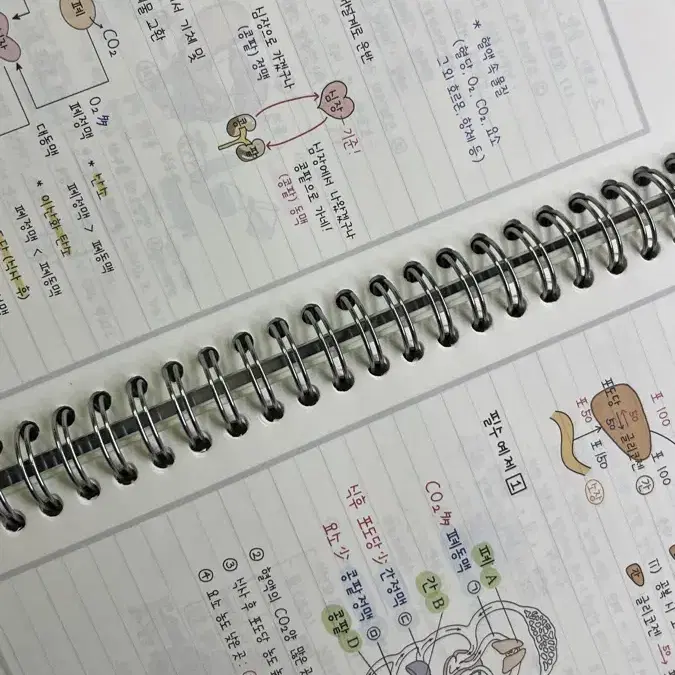 폐
CO₂
O₂ 多
폐정맥
대동맥
* 산소
폐정맥 > 폐동맥
* 이산화 탄소
폐정맥 < 폐동맥
(식사 후)
심장으로 가겠구나
(콩팥) 정맥
심장
기준!
콩팥
심장에서 나왔겠구나
콩팥으로 가네!
(콩팥) 동맥
* 혈액 속 물질
(혈당, O₂, CO₂, 요소
그 외 호르몬, 항체 등)
필수 예제 1
CO₂ 多 폐동맥 ㉠
폐 A
간 B
식후 포도당 小 간정맥 ㉢
요소 小 콩팥정맥 ㉣
콩팥 D
② 혈액의 CO₂양 많은
③ 식사 후 포도당 농도
④ 요소 농도 낮은 곳 :
포 100
포 100
포도당 50 글리코젠
간
포 50
포 150
소장
ii) 공복 시
간
글리코젠 50